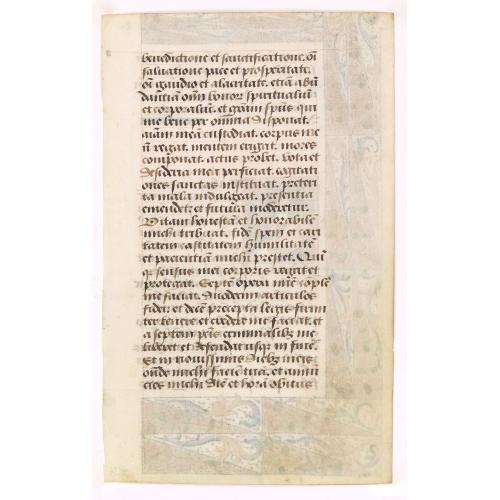 benedictione et sanctificatione. oī
saluatione pace et prosperitate.
oī gaudio et alacritate. etiā abū
dantiā oīm bonor spiritualiū
et corporaliū. et gratiā sp̄us qui
me bene per omnia disponat.
aīam meā custodiat. corpus me
ū regat. mentem erigat. mores
componat. actus probet. vota et
desideria mea perficiat. cogitati
ones sanctas instituat. preteri
ta mala indulgeat. presentia
emendet et futura moderetur.
Vitam honestā et honorabilē
michi tribuat. fidē spem et cari
tatem castitatem humilitatē
et pacientiam michi prestet. Quī
qꝫ sensus mei corporis regat et
protegat. Septē opera mīe cōple
me faciat. Duodecim articulos
fidei et decē precepta legis firmi
ter tenere et credere me faciat. et
a septem pctīs criminalibꝫ me
liberet et defendat usqꝫ in finē.
Et in nouissimis diebꝫ meis
onde michi faciē tuā. et annū
cies michi diē et horā obitus